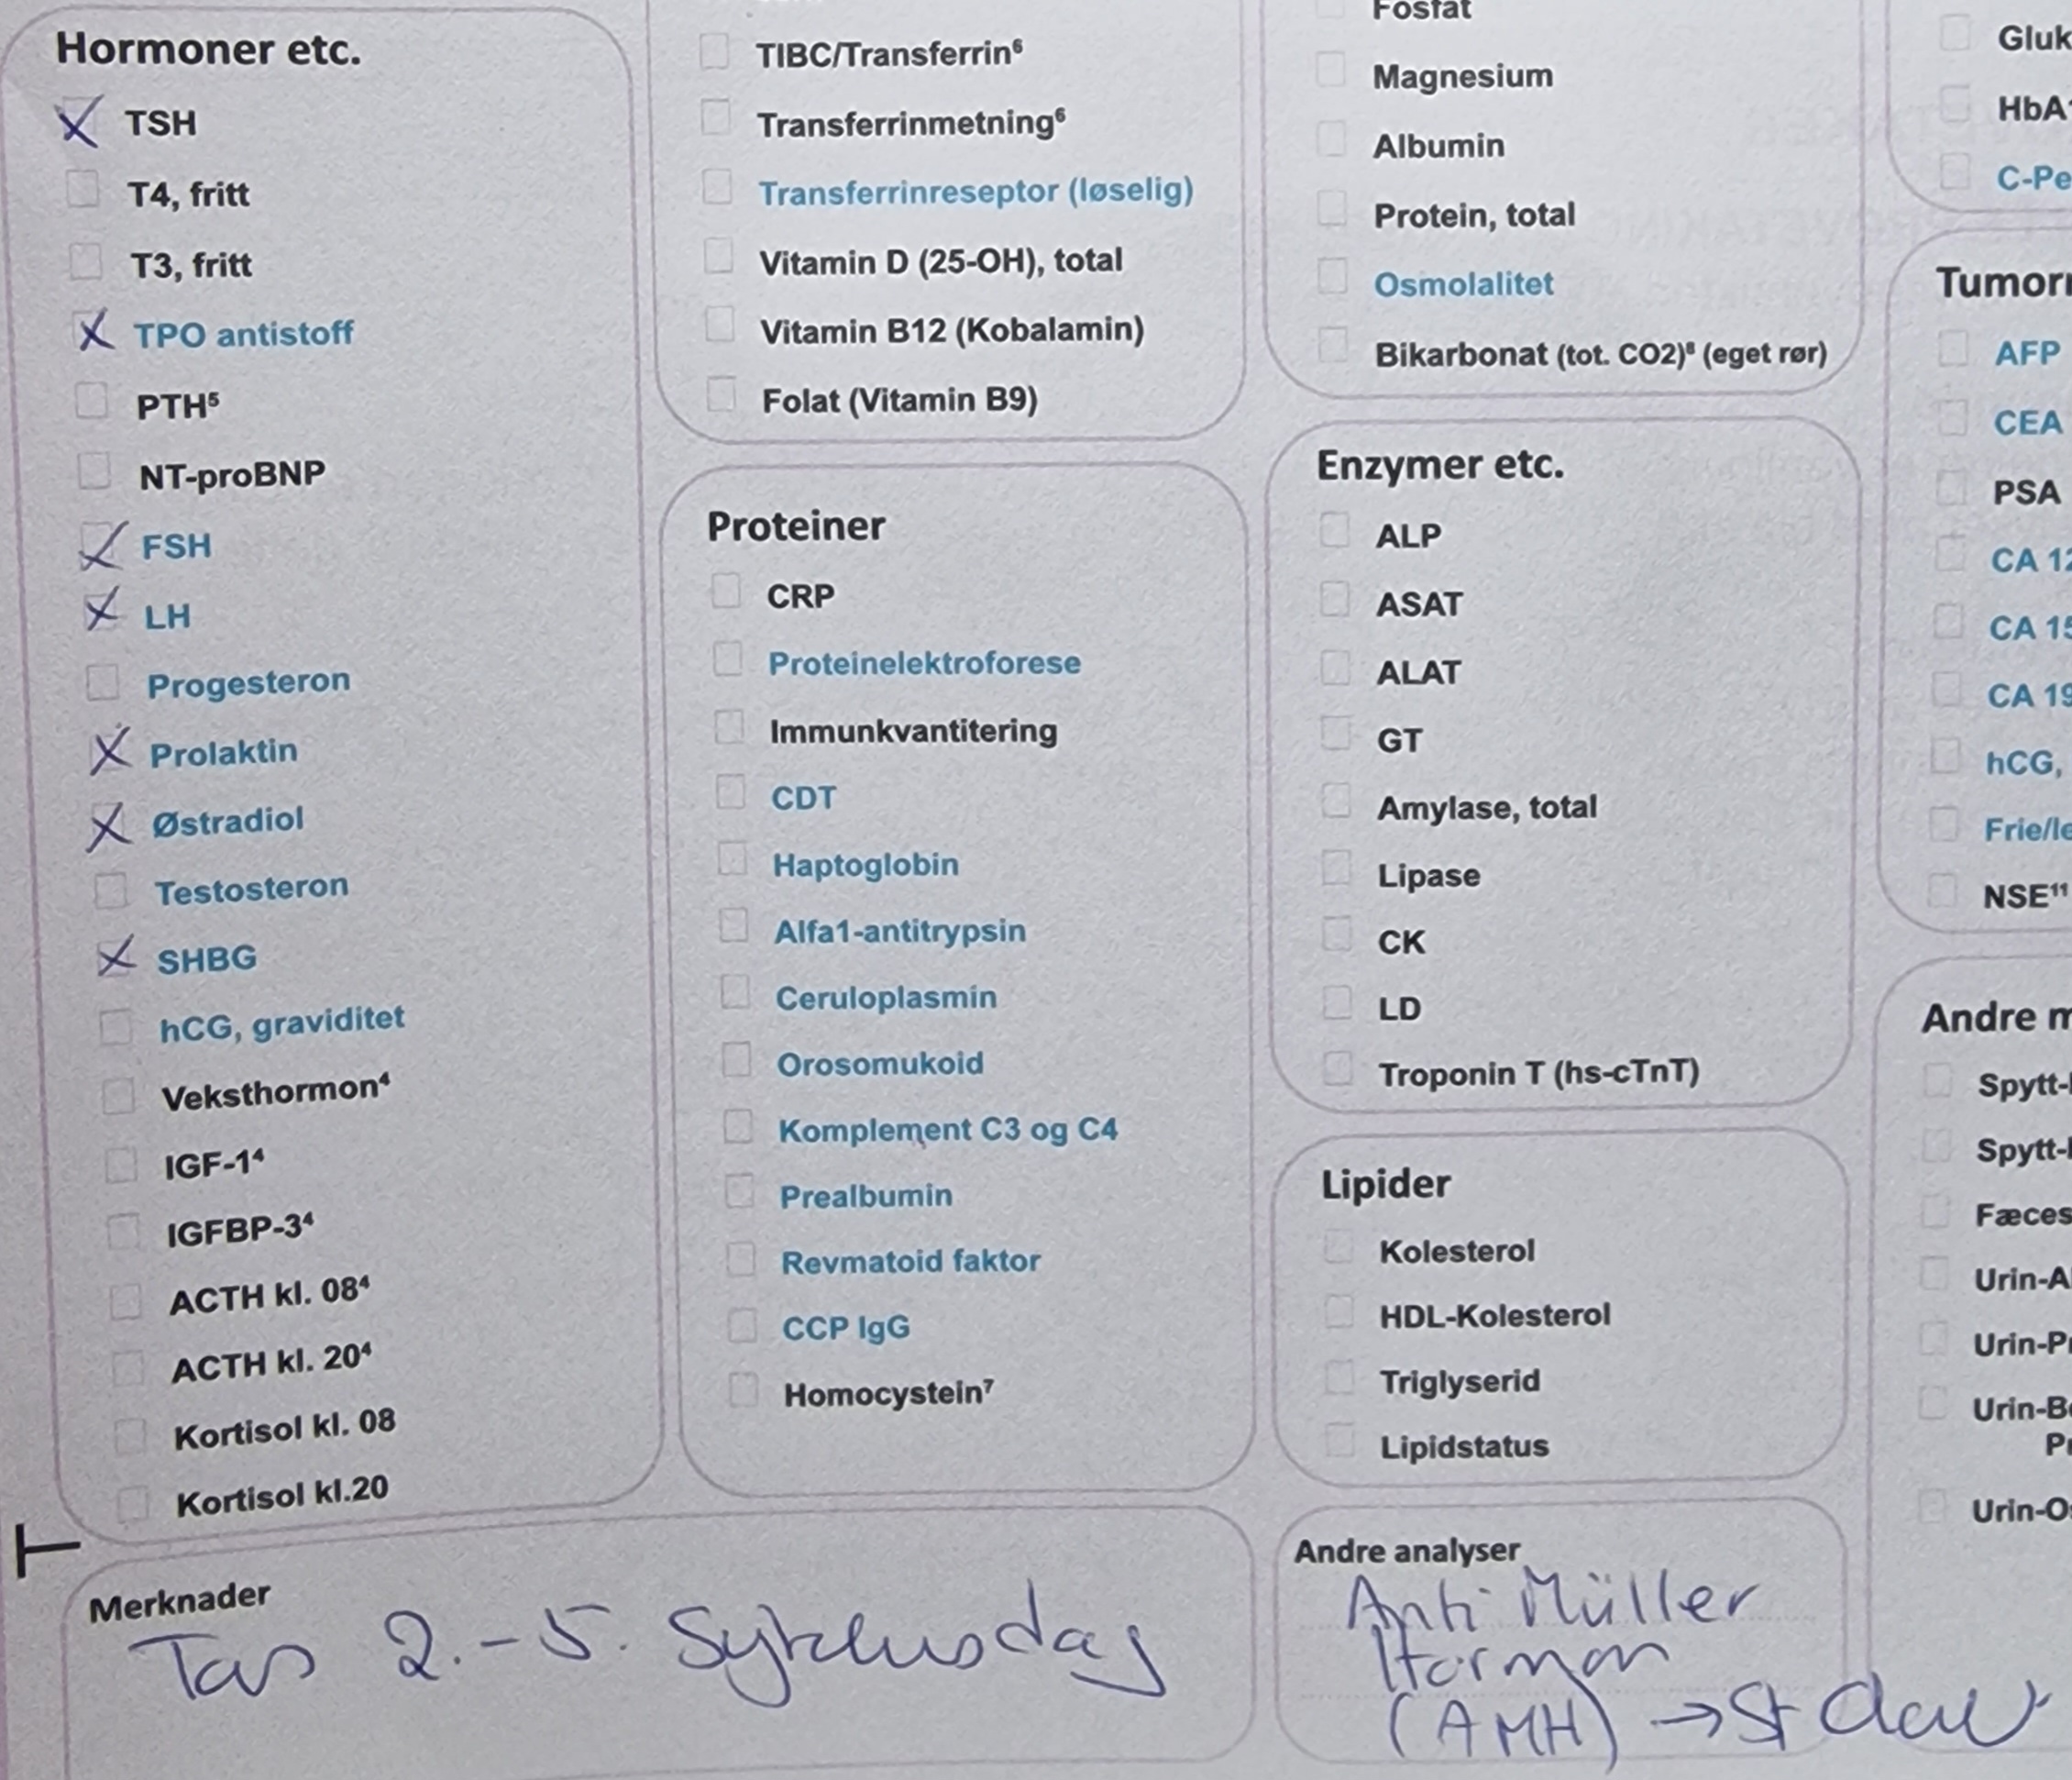 Hormoner etc.
TSH
T4, fritt
T3, fritt
TPO antistoff
PTH⁵
NT-proBNP
FSH
LH
Progesteron
Prolaktin
Østradiol
Testosteron
SHBG
hCG, graviditet
Veksthormon⁴
IGF-1⁴
IGFBP-3⁴
ACTH kl. 08⁴
ACTH kl. 20⁴
Kortisol kl. 08
Kortisol kl.20
TIBC/Transferrin⁶
Transferrinmetning⁶
Transferrinreseptor (løselig)
Vitamin D (25-OH), total
Vitamin B12 (Kobalamin)
Folat (Vitamin B9)
Proteiner
CRP
Proteinelektroforese
Immunkvantitering
CDT
Haptoglobin
Alfa1-antitrypsin
Ceruloplasmin
Orosomukoid
Komplement C3 og C4
Prealbumin
Revmatoid faktor
CCP IgG
Homocystein⁷
Fosfat
Magnesium
Albumin
Protein, total
Osmolalitet
Bikarbonat (tot. CO2)⁸ (eget rør)
Enzymer etc.
ALP
ASAT
ALAT
GT
Amylase, total
Lipase
CK
LD
Troponin T (hs-cTnT)
Lipider
Kolesterol
HDL-Kolesterol
Triglyserid
Lipidstatus
Gluk
HbA
C-Pe
Tumor
AFP
CEA
PSA
CA 12
CA 15
CA 19
hCG,
Frie/le
NSE¹¹
Andre m
Spytt-
Spytt-
Fæces
Urin-A
Urin-P
Urin-B
P
Urin-O
Merknader
Tas 2.-5. Syklusdag
Andre analyser
Anti Müller
Hormon
(AMH) → St Olav